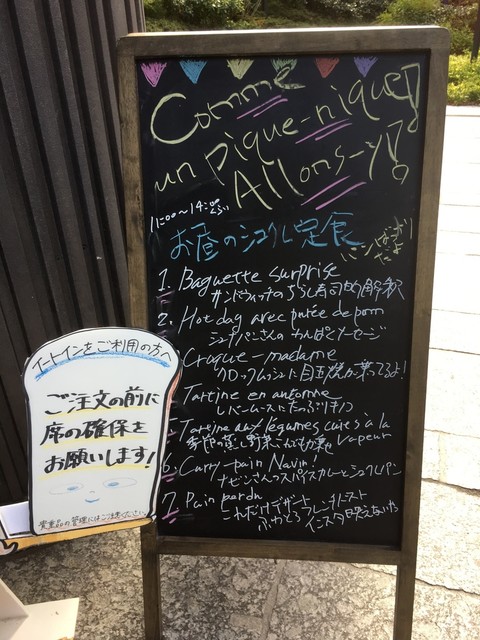 Comme
un pique-nique!
Allons-y!
11:00〜14:00くらい
お昼のシュクレ定食
パンばっかり
だよ
1. Baguette surprise
サンドウィッチのちらし寿司的解釈
2. Hot dog avec purée de pom
シュクパンさんのわんぱくソーセージ
Croque-madame
クロックムッシュに目玉焼が乗ってるよ!
Tartine en automne
レバームースにたっぷりキノコ
Tartine aux legumes cuits à la
vapeur
季節の蒸し野菜
6. Curry-pain Navin!
ナビンさんのスパイスカレーとシュクレパン
7. Pain perdu
これだけデザート フレンチトースト
ふわとろ インスタ映えないね
イートインをご利用の方へ
ご注文の前に
席の確保を
お願いします!
貴重品の管理にはご注意ください